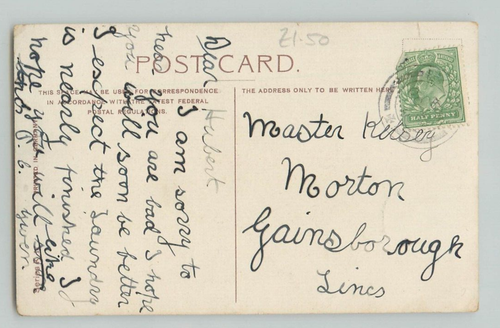 Z1-50
POST CARD.
THIS SPACE TO BE USED FOR CORRESPONDENCE
IN ACCORDANCE WITH THE LATEST FEDERAL
POSTAL REGULATIONS.
THE ADDRESS ONLY TO BE WRITTEN HERE
HALFPENNY
Dear Hubert
I am sorry to
hear you are bad I hope
you will soon be better
I expect the Laundry
is nearly finished I
hope you will like
Master Kelsey
Morton
Gainsborough
Lincs